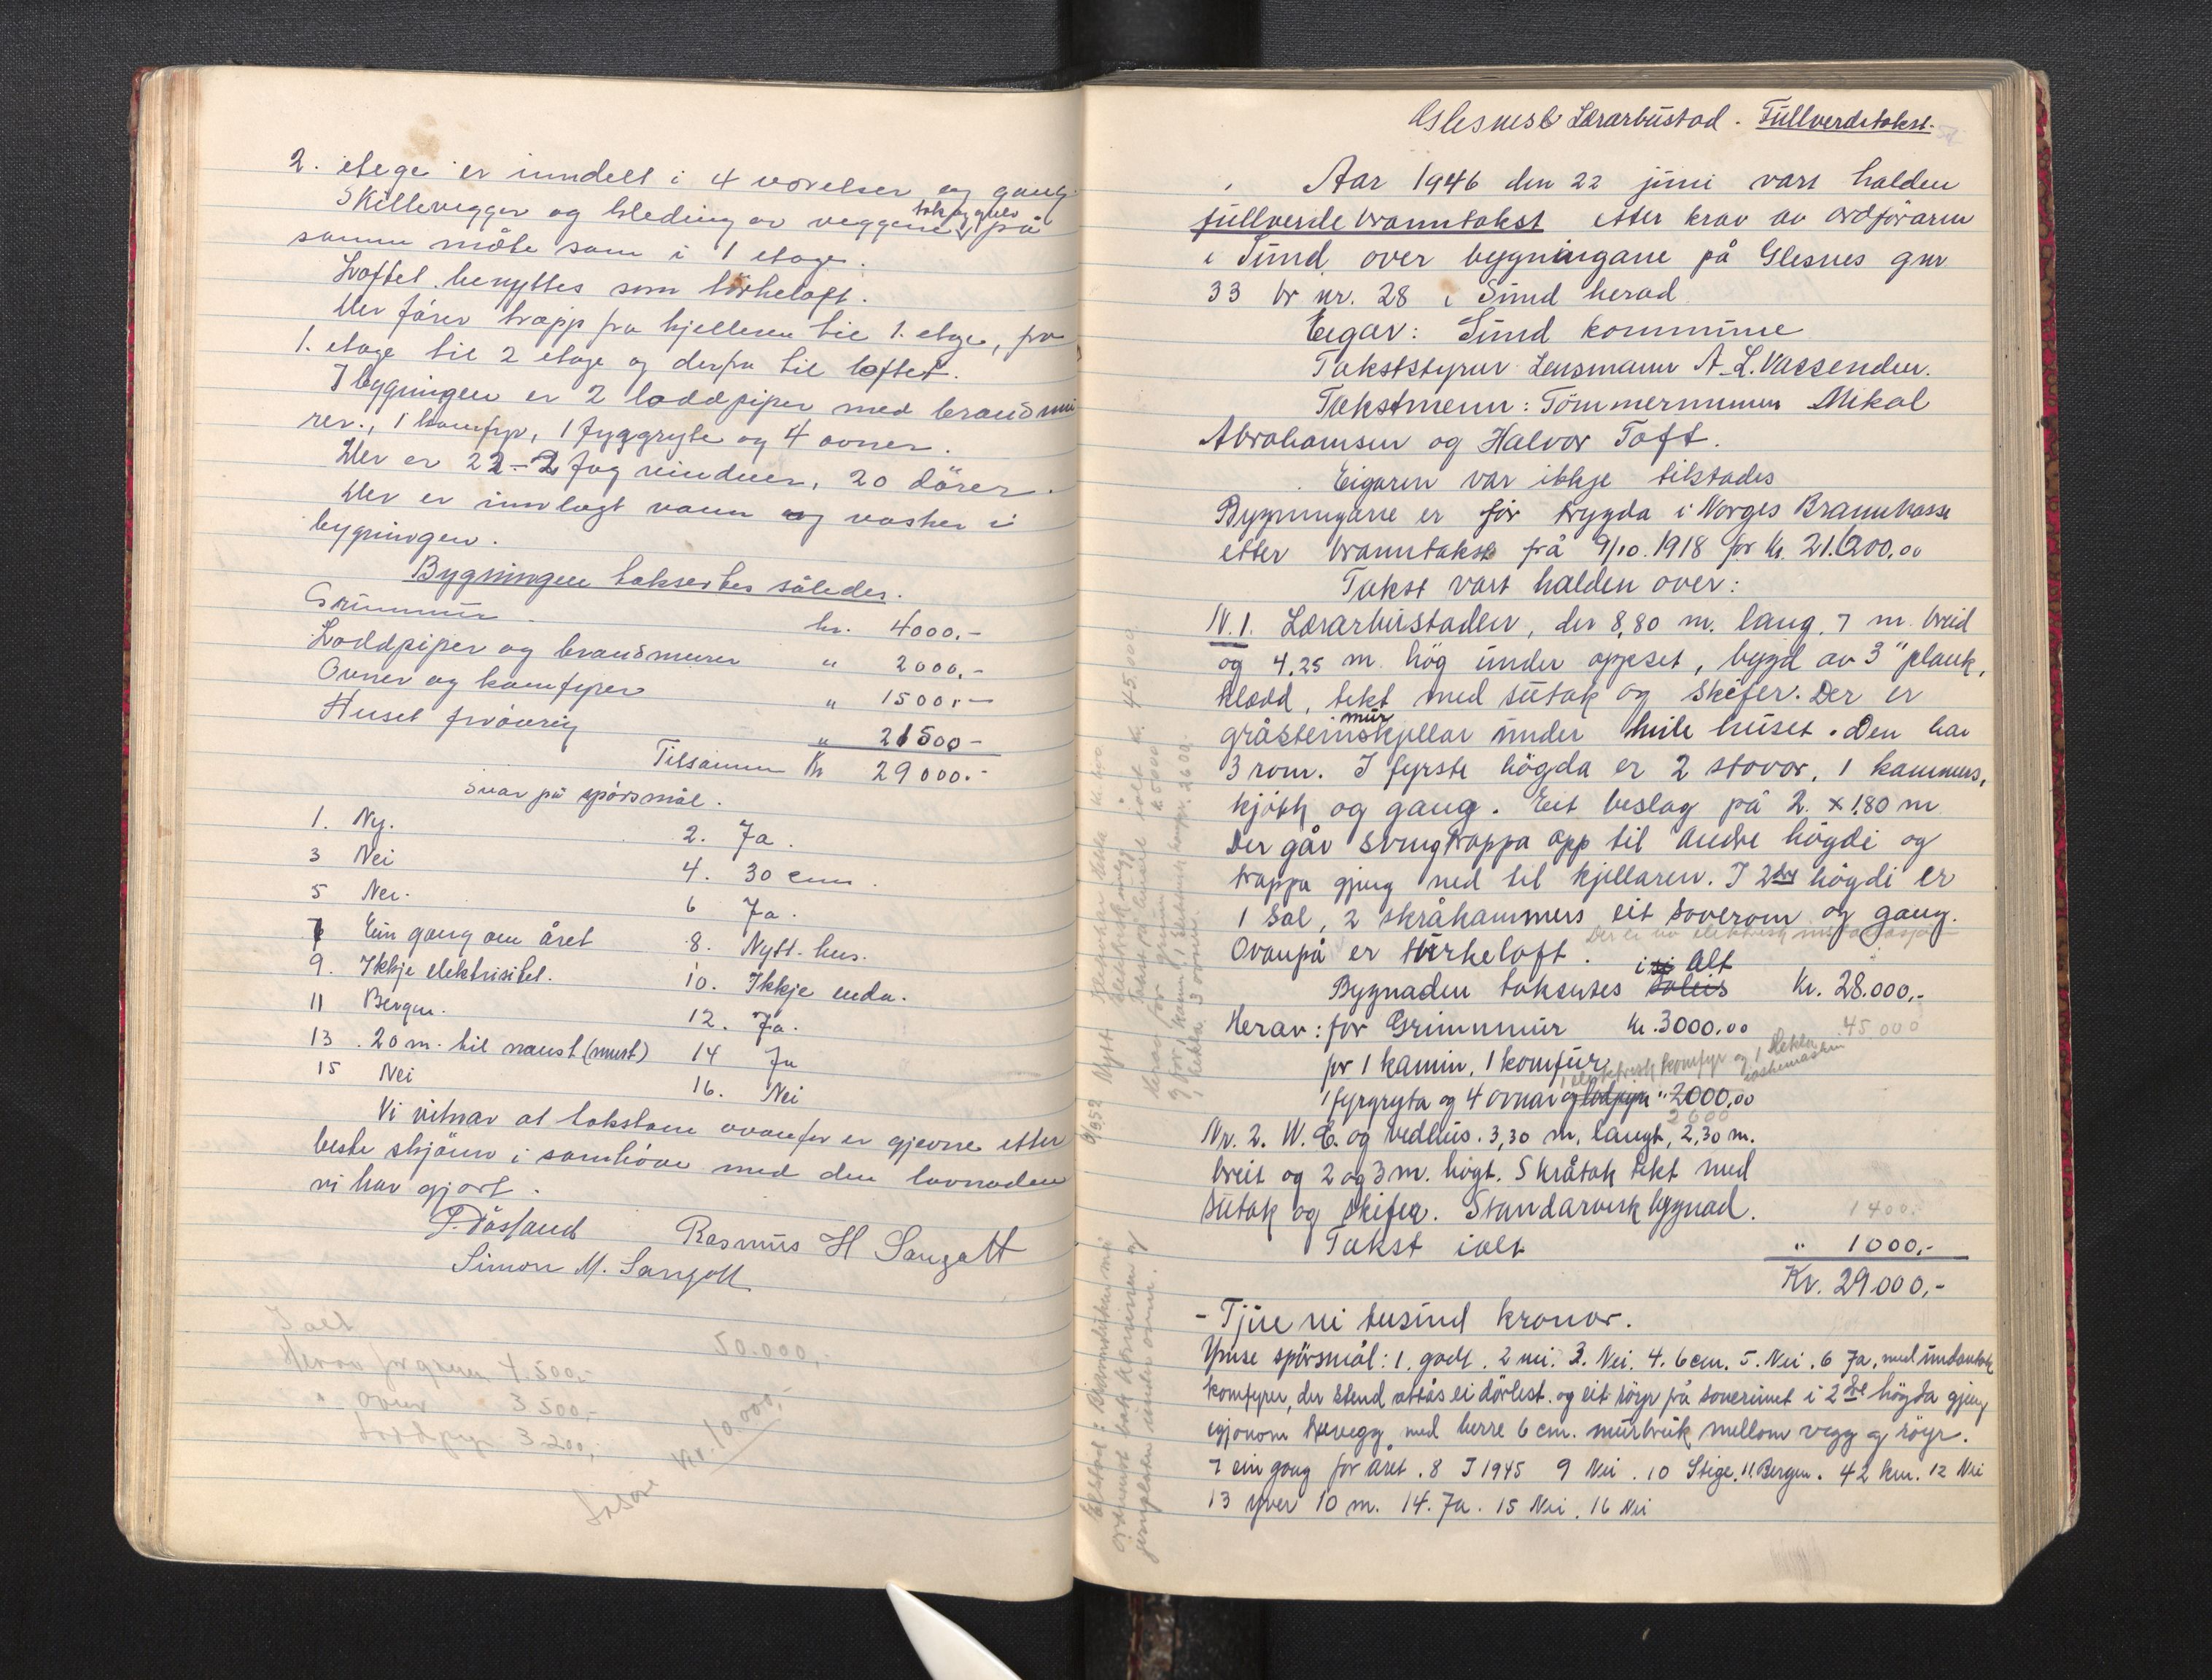 2. etege er inndelt i 4 værelser og gang.
Skillevegger og kleding av veggene tak og gulv på
samme måte som i 1 etage.
Loftet benyttes som törkeloft.
Der förer trapp fra kjelleren til 1. etage, fra
1. etage til 2 etage og derfra til loftet.
I bygningen er 2 loddpiper med brandmu
rer., 1 komfyr, 1 fyrgryte og 4 ovner.
Der er 22 - 2 fag vinduer, 20 dörer.
Der er innlagt vann og vasker i
bygningen.
Bygningen takseres således.
Grunnmur kr. 4000.-
Loddpiper og brandmurer " 2000.-
Ovner og komfyrer " 1500.-
Huset forövrig " 21500-
Tilsamen Kr 29000.-
Svar på spörsmål.
1. Ny. 2. Ja.
3 Nei 4. 30 cm.
5 Nei. 6 Ja.
7 Ein gang om året 8. Nytt hus.
9. Ikkje elektrisitet. 10. Ikkje enda.
11 Bergen. 12. Ja.
13. 20 m. til naust (murt) 14 Ja
15 Nei 16. Nei
Vi vitnar at takstane ovanfor er gjevne etter
beste skjönn i samhöve med den lovnaden
vi har gjort.
Rasmus H Sangolt
Simon M. Sangolt
Ialt 50.000,-
Herav for grunn 4.500,-
" Ovner 3500,-
Loddpipe 3200,-
kr. 10000,-
Glesnes Lærarbustad. Fullverdetakst.
Aar 1946 den 22 juni vart halden
fullverde branntakst etter krav av ordföraren
i Sund over bygningane på Glesnes gnr
33 br nr. 28 i Sund herad
Eigar: Sund kommune
Takststyrar Lensmann A. L. Vassenden.
Takstmenn: Tömmermennen Mikal
Abrahamsen og Halvor Toft.
Eigaren var ikkje tilstades
Bygningane er för trygda i Norges Brannkasse
etter branntakst frå 9/10. 1918 for kr. 21.200,00
Takst vart halden over:
N. 1. Lærarbustaden, der 8,80 m. lang, 7 m. breid
og 4,25 m. hög under oppset, bygd av 3" plank,
klædd, tekt med sutak og skifer. Der er
gråsteinsmurkjellar under heile huset. Den har
3 rom. I fyrste högda er 2 stovor, 1 kammers,
kjökk og gang. Eit beslag på 2. x 1.80 m
Der går svingtrappa opp til andre högdi og
trappa gjeng ned til kjellaren. I 2dre högdi er
1 sal, 2 skråkammers eit soverom og gang.
Ovanpå er turkeloft. Der er no elektrisk
Bygnaden takseres saleis i alt Kr. 28.000,-
Herav: for Grunnmur kr. 3000,00 45.000
for 1 kamin, 1 komfur,
1 elektrisk komfyr og 1 vaskemaskin
1 fyrgryta og 4 ovnar og lodpipe " 2000,00
2600
Nr. 2. W. C. og vedhus. 3,30 m. langt, 2,30 m.
breit og 2 og 3 m. högt. Skråtak tekt med
sutak og skifer. Standarverk bygnad. 1400.
Takst ialt " 1000,-
Kr. 29000,-
- Tjue ni tusund kronor.
Ymse spörsmål: 1. godt. 2 nei. 3. Nei. 4. 6 cm. 5. Nei. 6 Ja, med undantak
komfyren, der stend attåt ei dörlist. og eit röyr på soverumet i 2dre högda gjeng
igjonom trevegg med berre 6 cm. murbruk mellom vegg og röyr.
7 ein gong for året. 8 I 1945 9 Nei. 10 Stige. 11. Bergen. 42 km. 12 Nei
13 yver 10 m. 14. Ja. 15 Nei. 16 Nei